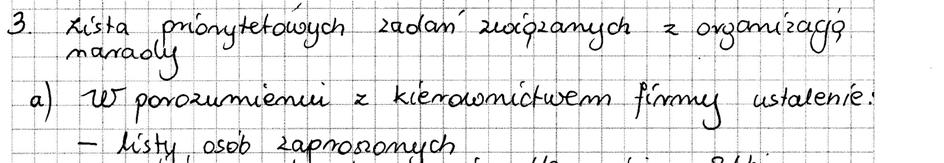 3. Lista priorytetowych zadań związanych z organizacją
narady
a) W porozumieniu z kierownictwem firmy ustalenie:
- listy osób zaproszonych